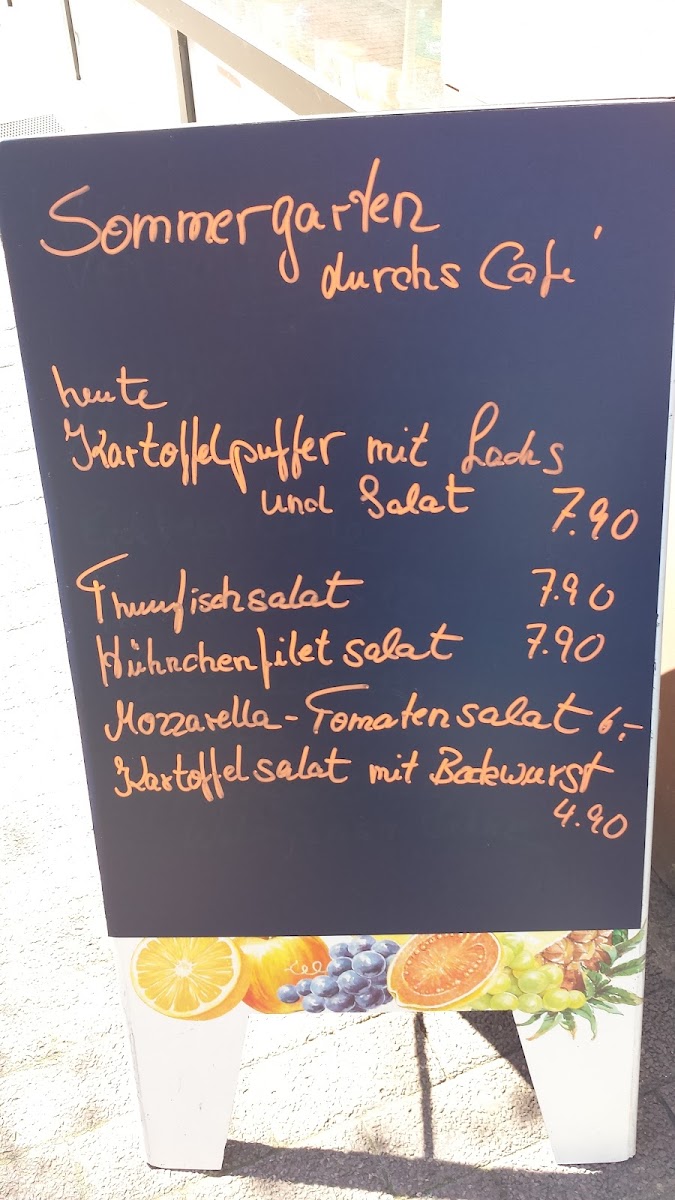 Sommergarten
durchs Café
heute
Kartoffelpuffer mit Lachs
und Salat 7.90
Thunfischsalat 7.90
Hühnchenfilet salat 7.90
Mozzarella-Tomatensalat 6,-
Kartoffelsalat mit Bockwurst
4.90